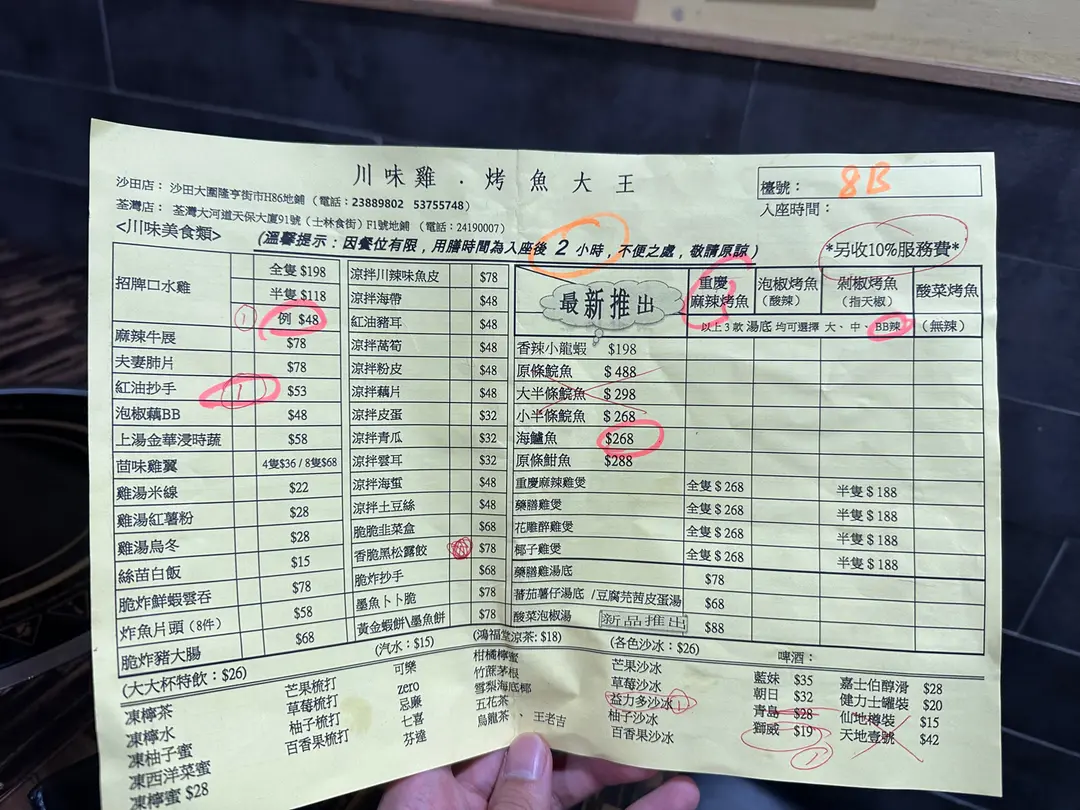 川味雞．烤魚大王
沙田店： 沙田大圍隆亨街市H86地鋪（電話：23889802 53755748）
荃灣店： 荃灣大河道天保大廈91號（士林食街）F1號地鋪（電話：24190007）
檯號： 8B
入座時間：
<川味美食類>
(溫馨提示：因餐位有限，用膳時間為入座後 2 小時，不便之處，敬請原諒)
*另收10%服務費*
招牌口水雞 全隻 $198
半隻 $118
1 例 $48
麻辣牛展 $78
夫妻肺片 $78
紅油抄手 1 $53
泡椒藕BB $48
上湯金華浸時蔬 $58
茴味雞翼 4隻$36 / 8隻$68
雞湯米線 $22
雞湯紅薯粉 $28
雞湯烏冬 $28
絲苗白飯 $15
脆炸鮮蝦雲吞 $78
炸魚片頭（8件） $58
脆炸豬大腸 $68
涼拌川辣味魚皮 $78
涼拌海帶 $48
紅油豬耳 $48
涼拌萵筍 $48
涼拌粉皮 $48
涼拌藕片 $48
涼拌皮蛋 $32
涼拌青瓜 $32
涼拌雲耳 $32
涼拌海蜇 $48
涼拌土豆絲 $48
脆脆韭菜盒 $68
香脆黑松露餃 $78
脆炸抄手 $68
墨魚卜卜脆 $78
黃金蝦餅\墨魚餅 $78
最新推出
重慶麻辣烤魚
泡椒烤魚（酸辣）
剁椒烤魚（指天椒）
酸菜烤魚
以上3款湯底 均可選擇 大、中、BB辣
（無辣）
香辣小龍蝦 $198
原條鯇魚 $ 488
大半條鯇魚 $ 298
小半條鯇魚 $ 268
海鱸魚 $268
原條鉗魚 $288
重慶麻辣雞煲 全隻 $ 268 半隻 $ 188
藥膳雞煲 全隻 $ 268 半隻 $ 188
花雕醉雞煲 全隻 $ 268 半隻 $ 188
椰子雞煲 全隻 $ 268 半隻 $ 188
藥膳雞湯底 $78
蕃茄薯仔湯底 /豆腐芫茜皮蛋湯 $68
酸菜泡椒湯 新品推出 $88
(大大杯特飲：$26)
凍檸茶
凍檸水
凍柚子蜜
凍西洋菜蜜
凍檸蜜 $28
芒果梳打
草莓梳打
柚子梳打
百香果梳打
(汽水：$15)
可樂
zero
忌廉
七喜
芬達
(鴻福堂涼茶: $18)
柑橘檸蜜
竹蔗茅根
雪梨海底椰
五花茶
烏龍茶 、 王老吉
(各色沙冰：$26)
芒果沙冰
草莓沙冰
益力多沙冰 1
柚子沙冰
百香果沙冰
啤酒：
藍妹 $35
朝日 $32
青島 $28
獅威 $19 1
嘉士伯醇滑 $28
健力士罐裝 $20
仙地樽裝 $15
天地壹號 $42